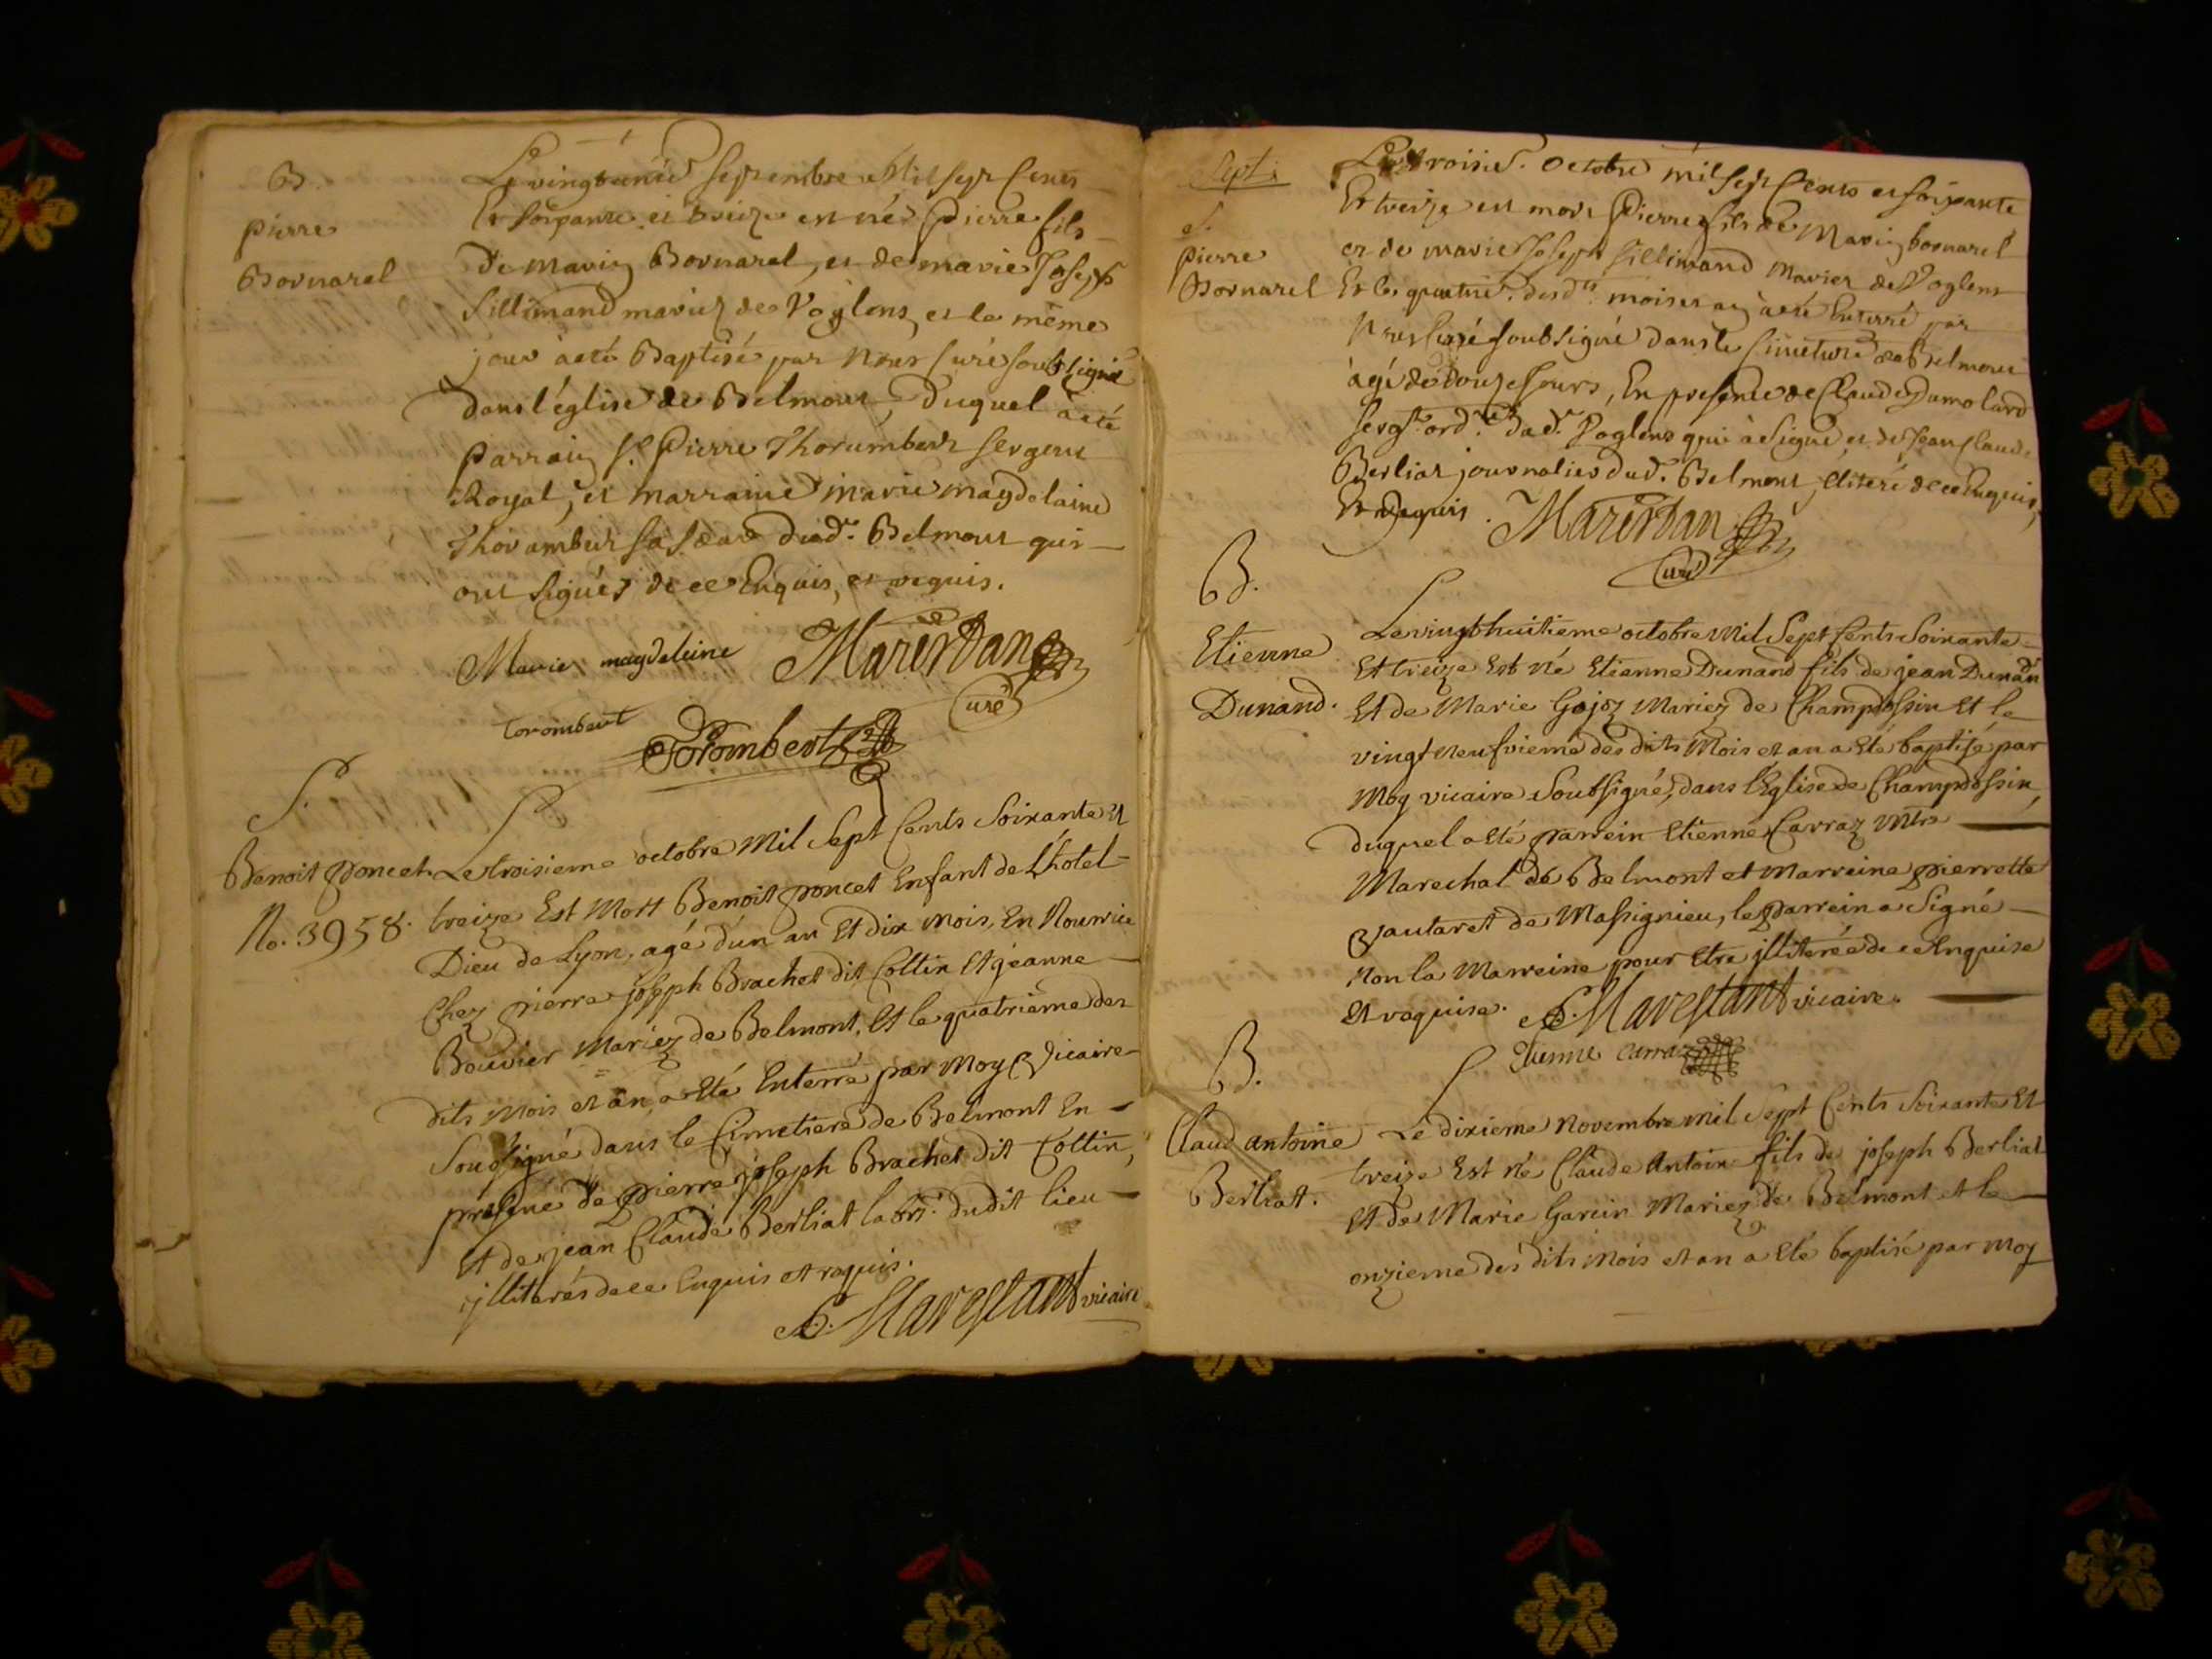 B.
Pierre
Bornarel
Le vingtunié septembre Mil sept Cents
Et soixante et treize est né Pierre fils
De marin Bornarel, et de marie Joseph
Sillimand mariez de Voglens, et le même
jour a été Baptisé par Nous Curé soubsigné
dans l'église de Belmont, duquel a été
Parrain Sr. Pierre Thorumbert sergent
Royal, et marraine marie magdelaine
Thorambert sa sœur dud. Belmont qui
ont signés de ce Enquis, et requis.
Marie magdeleine
torombert
Marestan
Curé
Torombert
S.
Benoit Poncet
No. 3958.
Le troisieme octobre Mil Sept Cents Soixante Et
treize Est Mort Benoit Poncet Enfant de L'hotel-
Dieu de Lyon, agé d'un an Et Dix mois, En Nourrice
Chez Pierre joseph Brachet dit Collin Et jeanne
Bouvier Mariez de Belmont, Et le quatrieme des
dits Mois et an, a Eté Enterré par Moy Vicaire
Sousigné dans le Cimetiere de Belmont En
presence de Pierre joseph Brachet dit Collin,
Et de jean Claude Berliat labr. dudit lieu
jllitarés de ce Enquis et requis.
Marestant vicaire
Sept:
S.
Pierre
Bornarel
Le troisie. Octobre mil sept Cents et soixante
Et treize est mort Pierre fils de Marin bornarel
et de marie Joseph Sillimand Mariez de Voglens
Et le quatrie. desdts. mois et an a été Enterré par
Nous Curé soubsigné dans le Cimetiere de Belmont
agé de Douze Jours, En presence de Claude Dumolard
Sergt. ordre. dud. Voglens qui a signé, et de Jean Claude
Berliat journalier dud. Belmont, illiteré de ce Enquis,
Et Requis.
Marestan
Curé
B.
Etienne
Dunand.
Le vingt huitieme octobre Mil Sept Cents Soixante
Et treize Est né Etienne Dunand fils de jean Dunand
Et de Marie Gojoz Mariez de Champdossin Et le
vingt neufvieme des dits Mois et an a Eté baptisé par
Moy vicaire Soubsigné, dans l'Eglise de Champdossin,
duquel a Eté parrein Etienne Carraz Mtre
Marechal de Belmont et Marreine pierrette
Vautaret de Massignieu, le parrein a Signé
Non la Marreine pour Etre jlliterée de ce Enquise
Et requise. Marestant vicaire.
Etienne carraz
B.
Claud antoine
Berliat.
Le dixieme Novembre mil Sept Cents Soixante Et
treize Est né Claude Antoine fils de joseph Berliat
Et de Marie Garcin Mariez de Belmont et le
onzieme des dits Mois et an a Eté baptisé par Moy